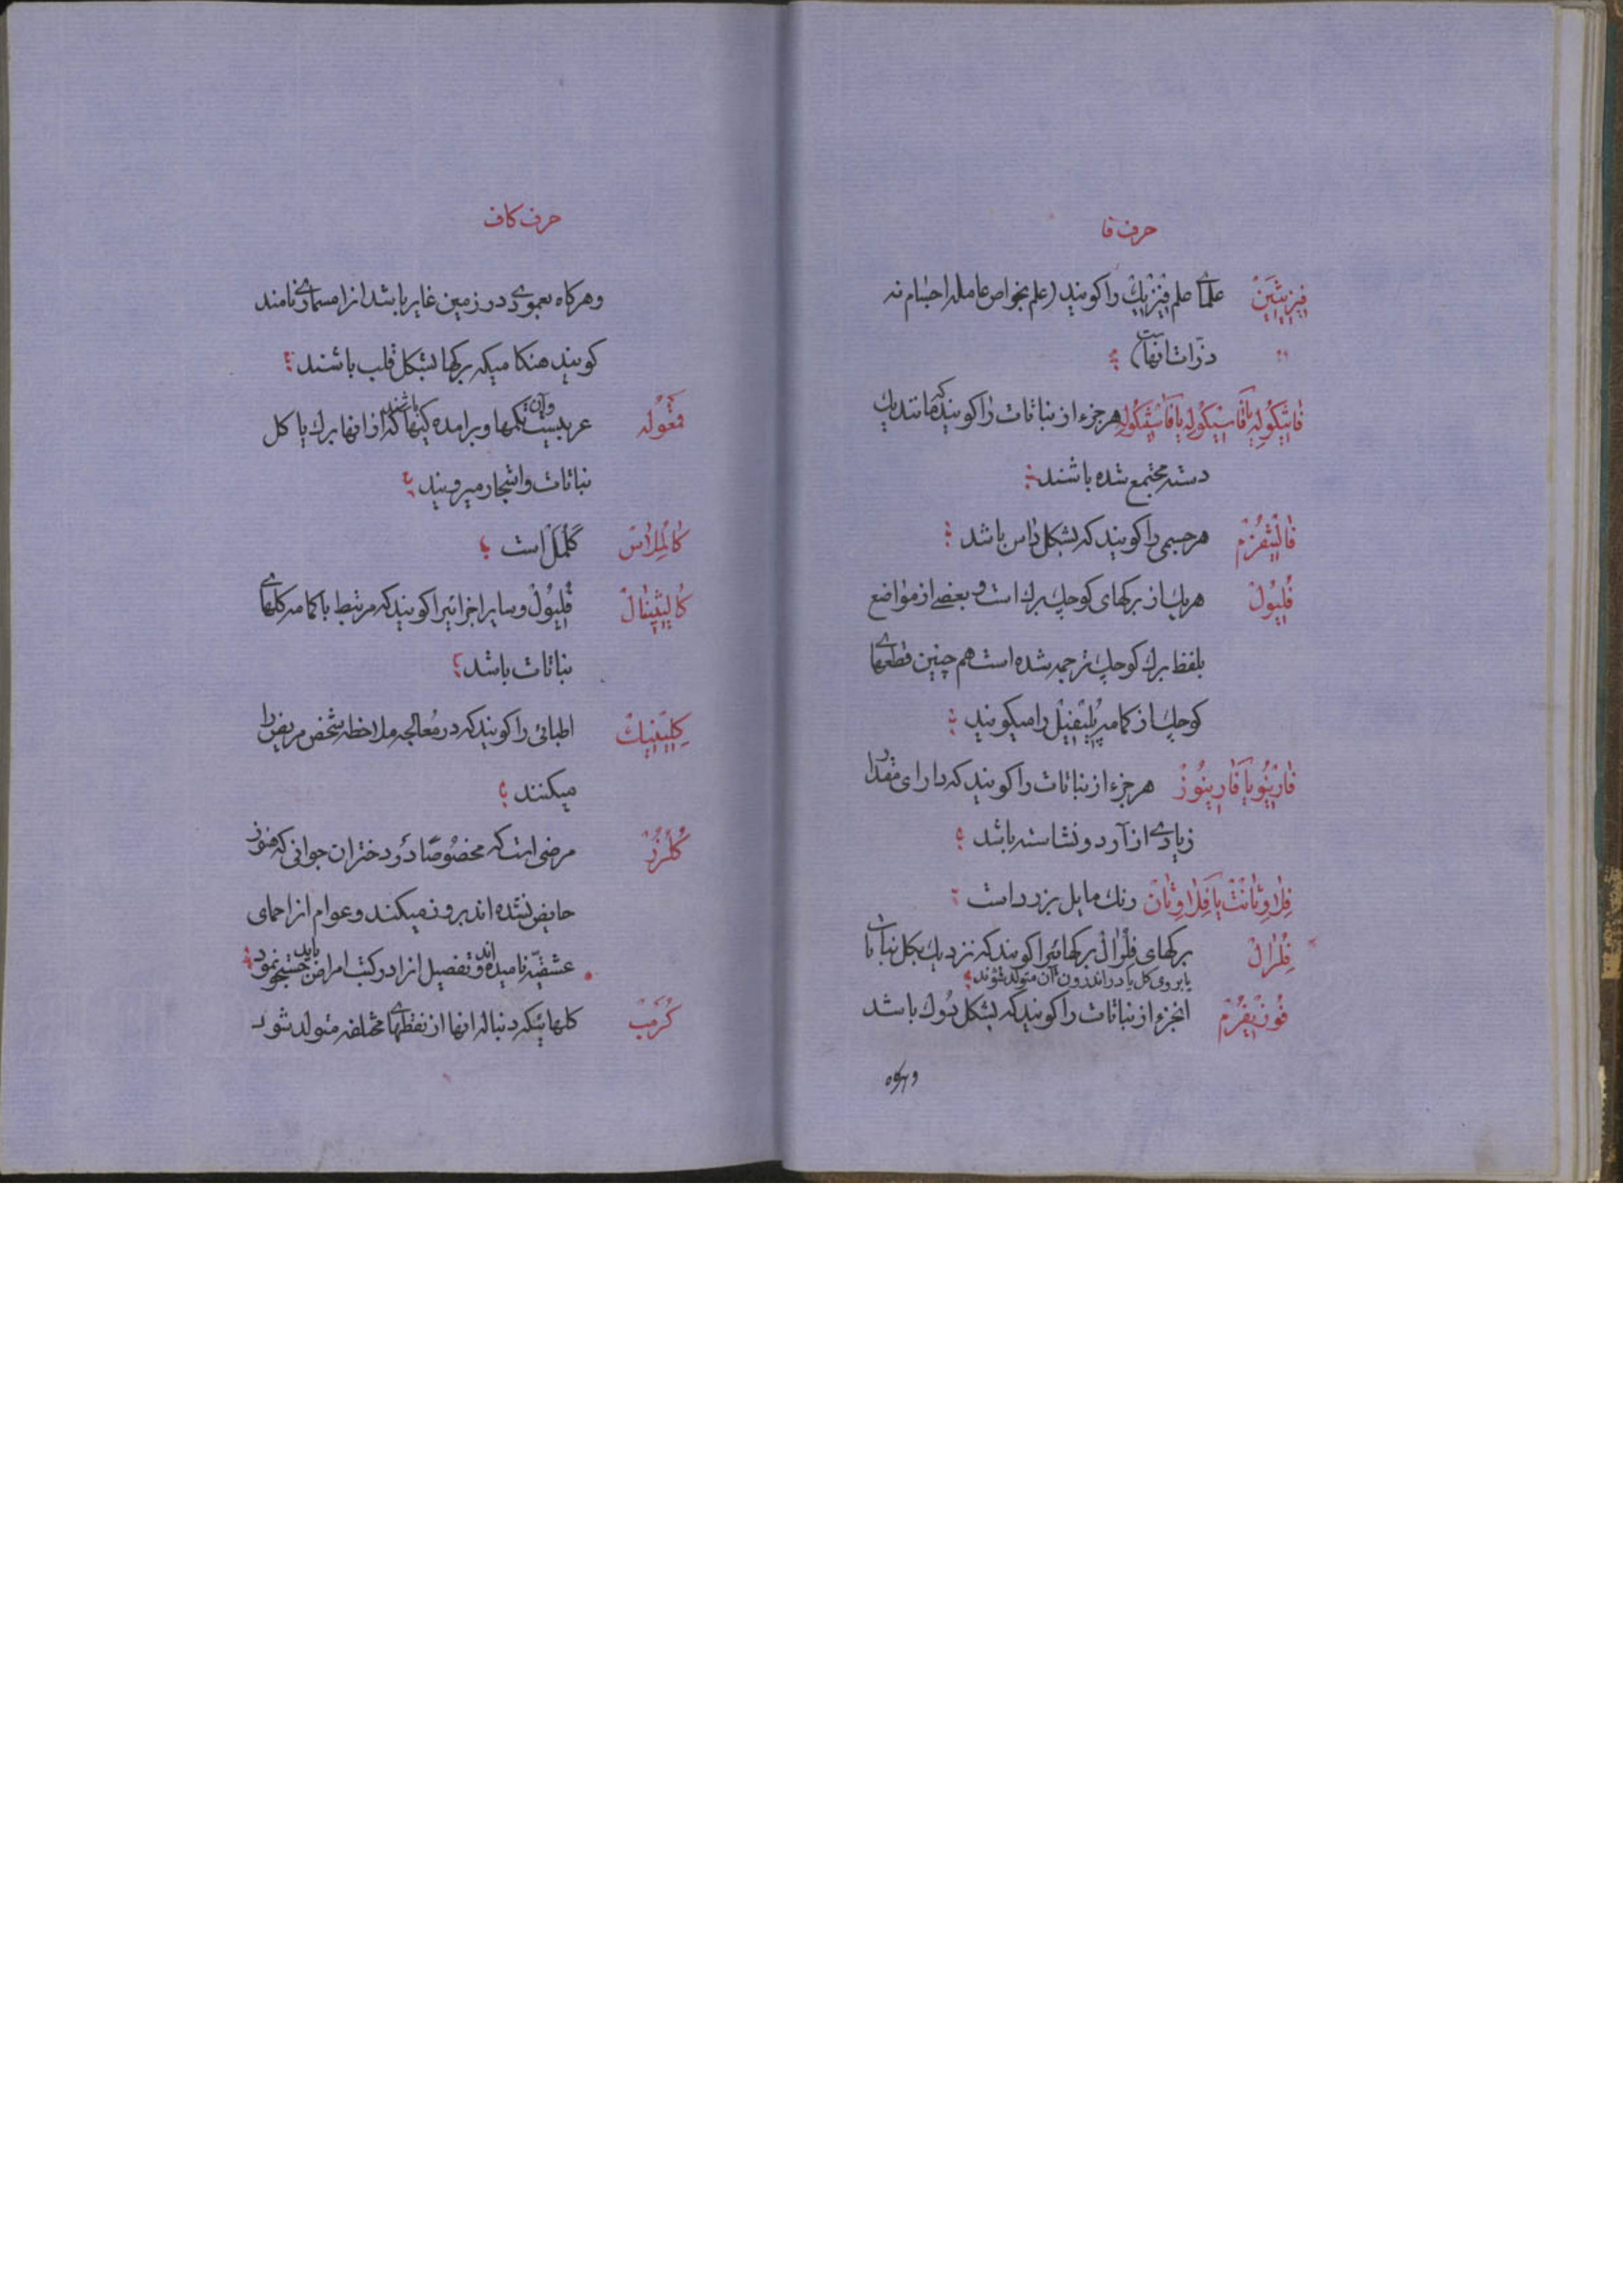 حرف فا
فیزیسین علمای علم فیزیک را کویند (علم بخواص عامله اجسام نه
ذرّات انهاست)
فاسیکوله یا فاسیکوله یا هرجزء از نباتات را کویند که مانند یک
دسته مجتمع شده باشند
فالیفرم هرجسمی را کویند که بشکل داس باشد
فلیول هریک از برکهای کوچک برک است و بعضی از مواضع
بلفظ برک کوچک ترجمه شده است هم چنین قطعهای
کوچک از کامه را میکویند
فارینو یا فارینوز هرجزء از نباتات را کویند که دارای مقدار
زیادی از آرد و نشاسته باشد
رنک مایل بزرد است
فلرال برکهای فلرال برکهائیرا کویند که نزدیک بکل نبات یا
یا بر روی کل یا در اندرون آن متولد شوند
انجزء از نباتات را کویند که بشکل دوک باشد
وهرکاه
حرف کاف
وهرکاه بعمودی در زمین غایر باشد انرا مسماری نامند
کویند هنکامیکه برکها بشکل قلب باشند
عربیست وان تکمها و برامده کیها باشند که از انها برک یا کل
نباتات و اشجار میرویند
کلمل است
کالیسینال فلیول و سایر اجزائیرا کویند که مرتبط با کامه کلهای
نباتات باشد
کلینیک اطبائی را کویند که در معالجه ملاحظه شخص مریض را
میکنند
کلرز مرضی است که مخصوصًا در دختران جوانی که هنوز
حایض نشده اند بروز میکند و عوام انرا حمای
عشقیّه نامیده اند و تفصیل انرا در کتب امراض باید جستجو نمود
کرمب کلهائیکه دنباله انها از نقطهای مختلفه متولد شود